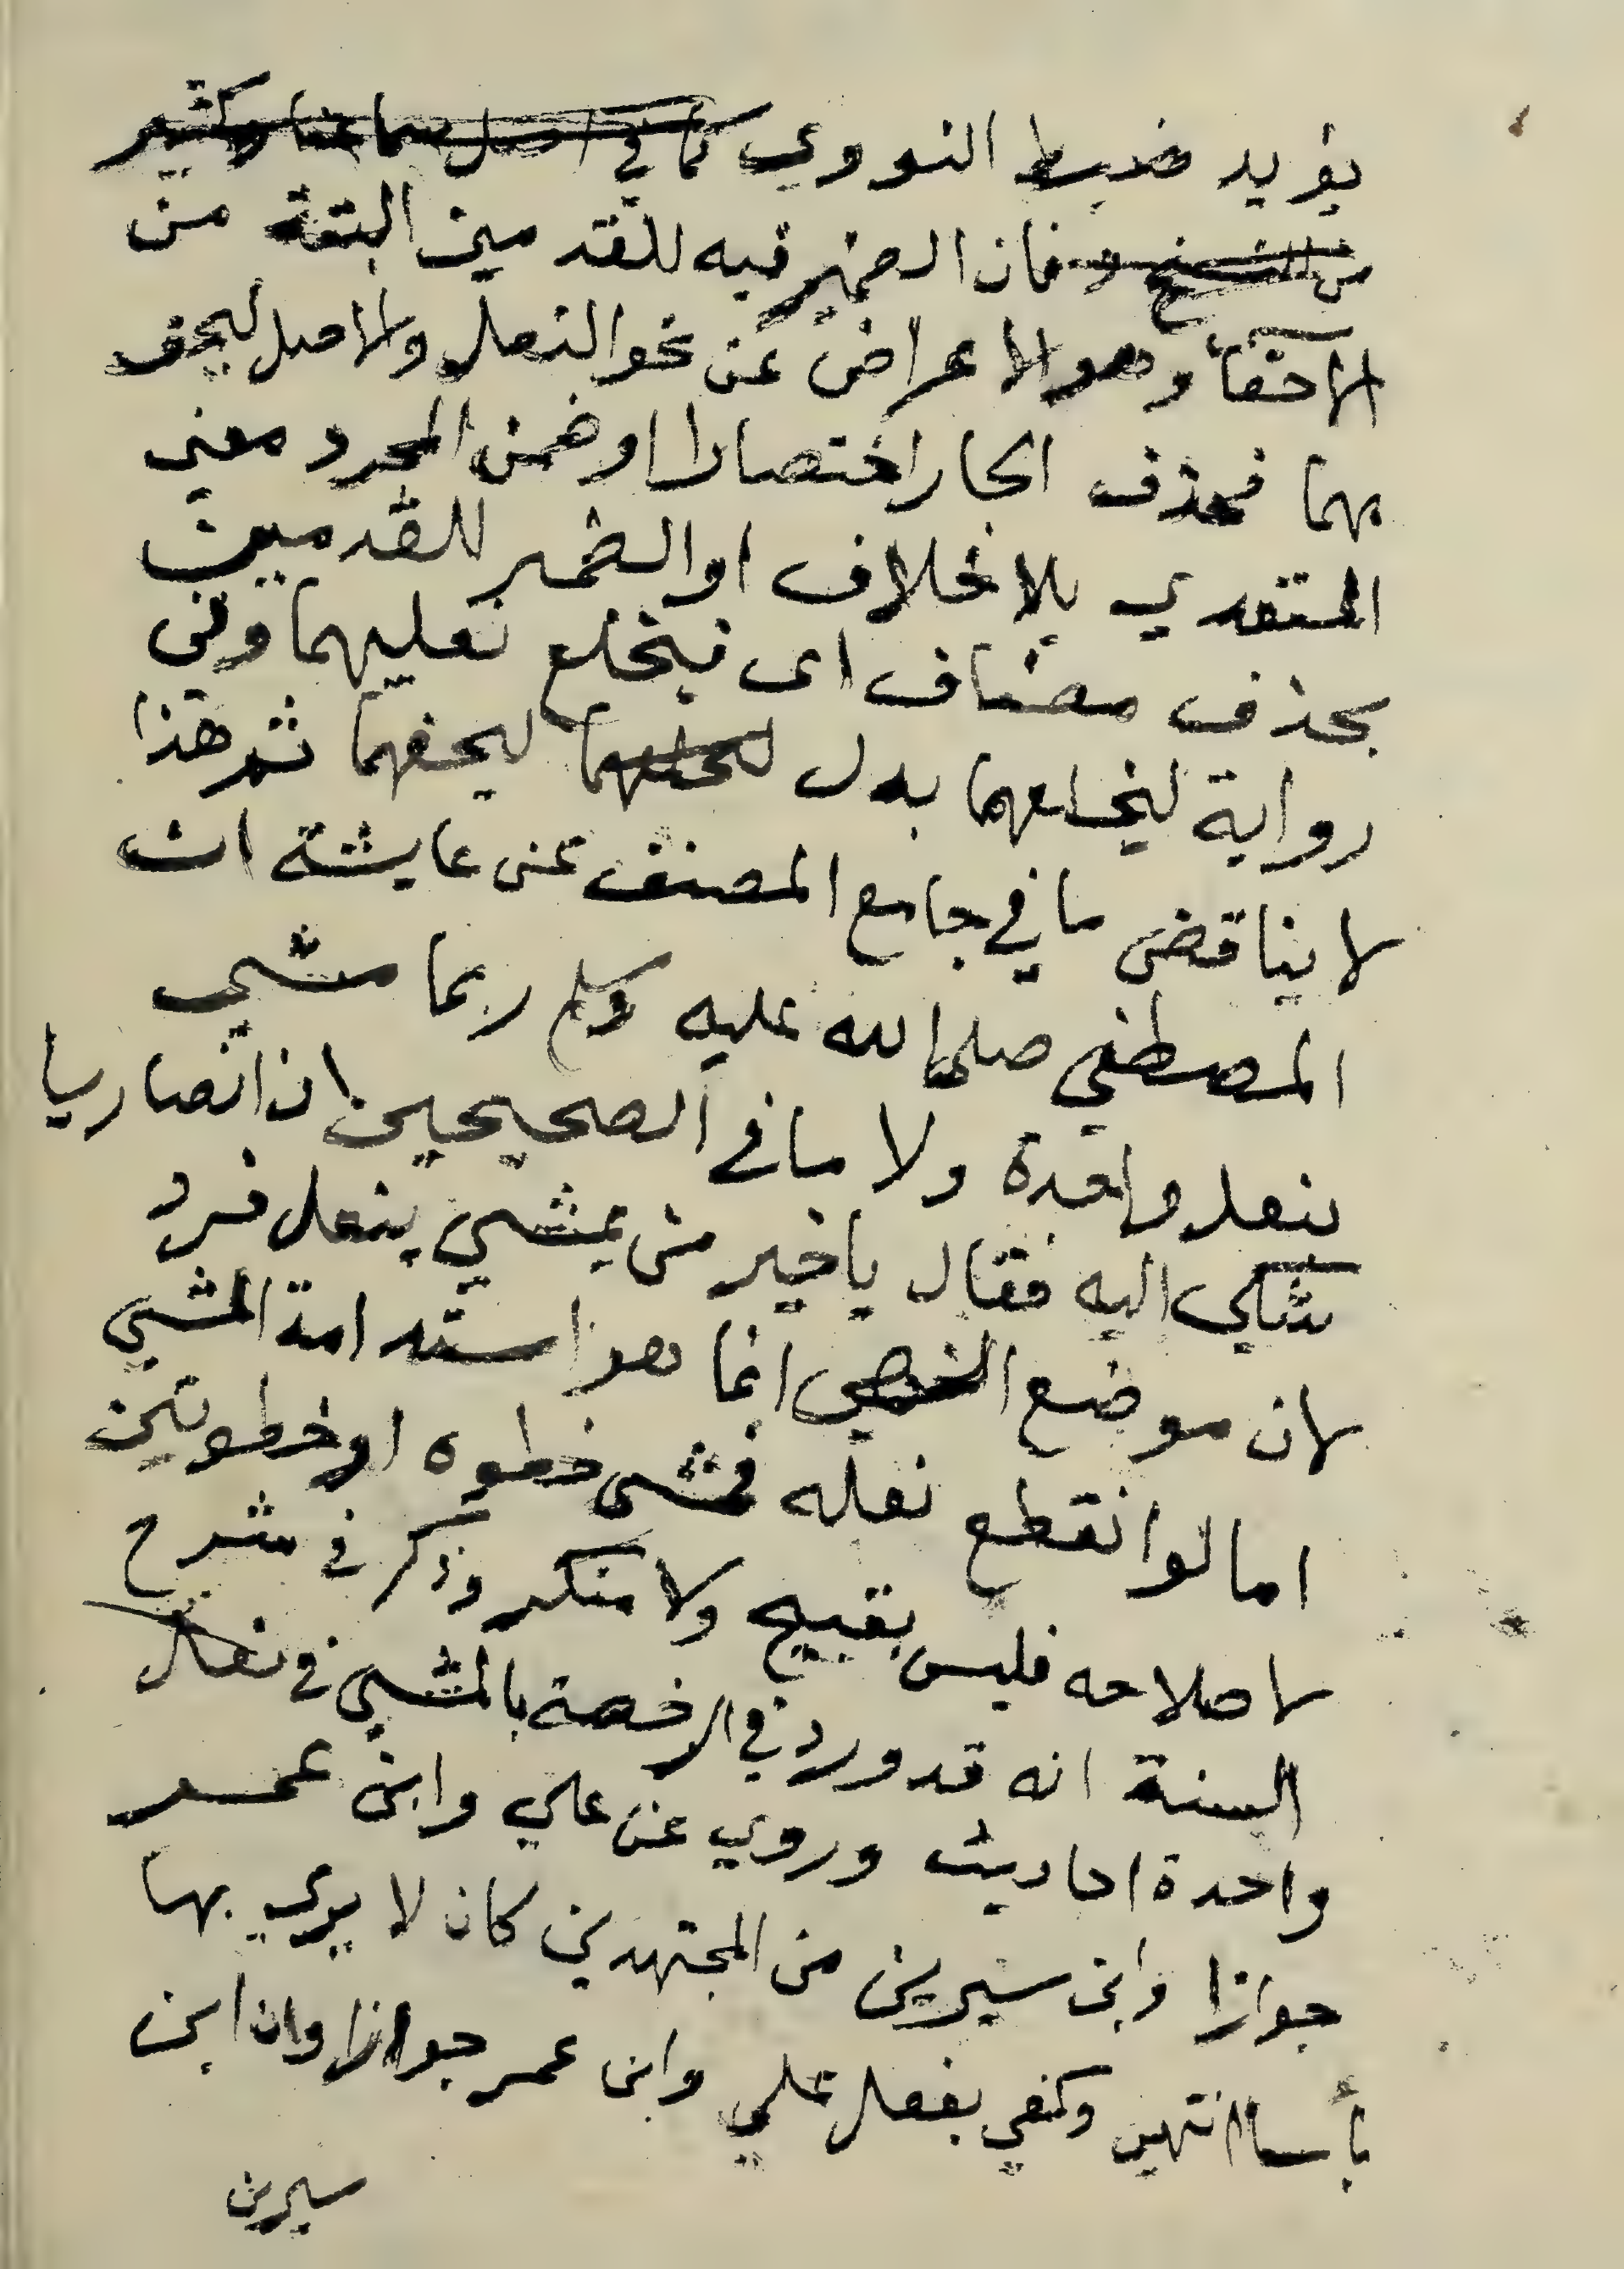 يؤيد ضبط النووي كما في اصل سماعنا وكثير
من النسخ و فان الضمير فيه للقدمين البتة من
الاحفاء وهو الاعراض عن نحو النعل والاصل ليحف
بهما فحذف الجار اختصارا او ضمن المجرد معنى
المتعدي بلا خلاف او الضمير للقدمين
بحذف مضاف اى فيخلع نعليهما وفى
رواية ليخلعهما بدل لخلعهما ليحفهما ثم هذا
لا يناقض ما في جامع المصنف عن عايشة ان
المصطفي صلى الله عليه وسلم ربما مشي
بنعل واحدة ولا ما في الصحيحين ان انصاريا
شكى اليه فقال يا خير من يمشي بنعل فرد
لان موضع النهي انما هو استدامة المشي
اما لو انقطع نعله فمشى خطوه او خطوتين
لاصلاحه فليس بقبيح ولا منكر وذكر في شرح
السنة انه قد ورد في الرخصة بالمشي في نعل
واحدة احاديث وروي عن علي وابن عمر
جوازا وابن سيرين من المجتهدين كان لا يرى بها
بأسا انتهى وكفي بفعل علي وابن عمر جوازا وان ابن
سيرين